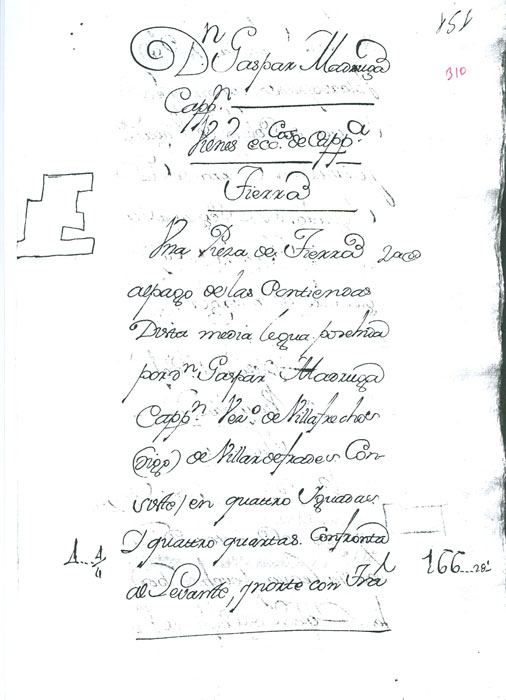 151
310
Dn Gaspar Madruga
Cappn
Vienes eccos de Cappa
Tierra
Vna Pieza de Tierra
al pago de las Contiendas
Dista media légua posehida
por dn Gaspar Madruga
Cappn Vezo de Villafrechos
(digo) de Villardefrades Con-
siste en quattro Yguadas
Y quattro quartas. Confronta
1 1/4
166
al Levante, y norte con